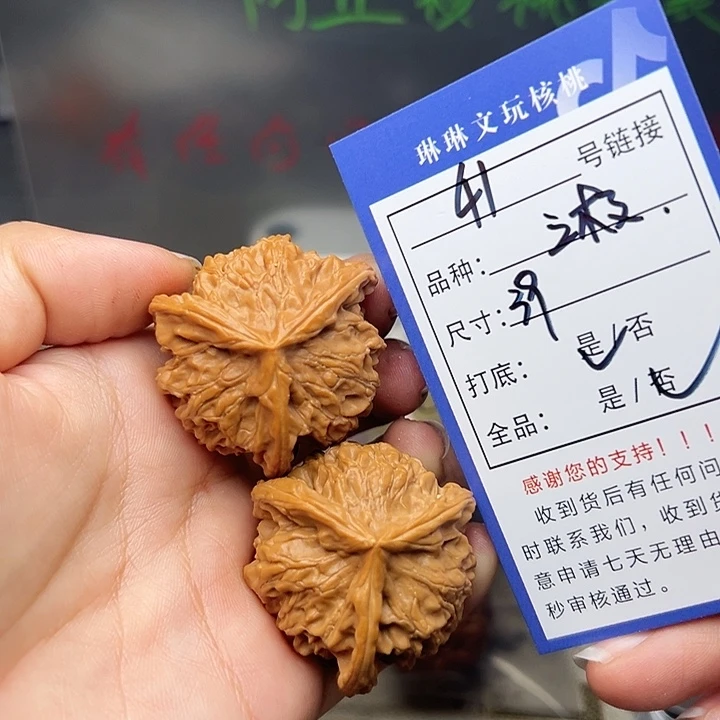 琳琳文玩核桃
41 号链接
品种：
尺寸：39
打底： 是/否
全品： 是/否
感谢您的支持！！！
收到货后有任何问
时联系我们，收到货
意申请七天无理由
秒审核通过。